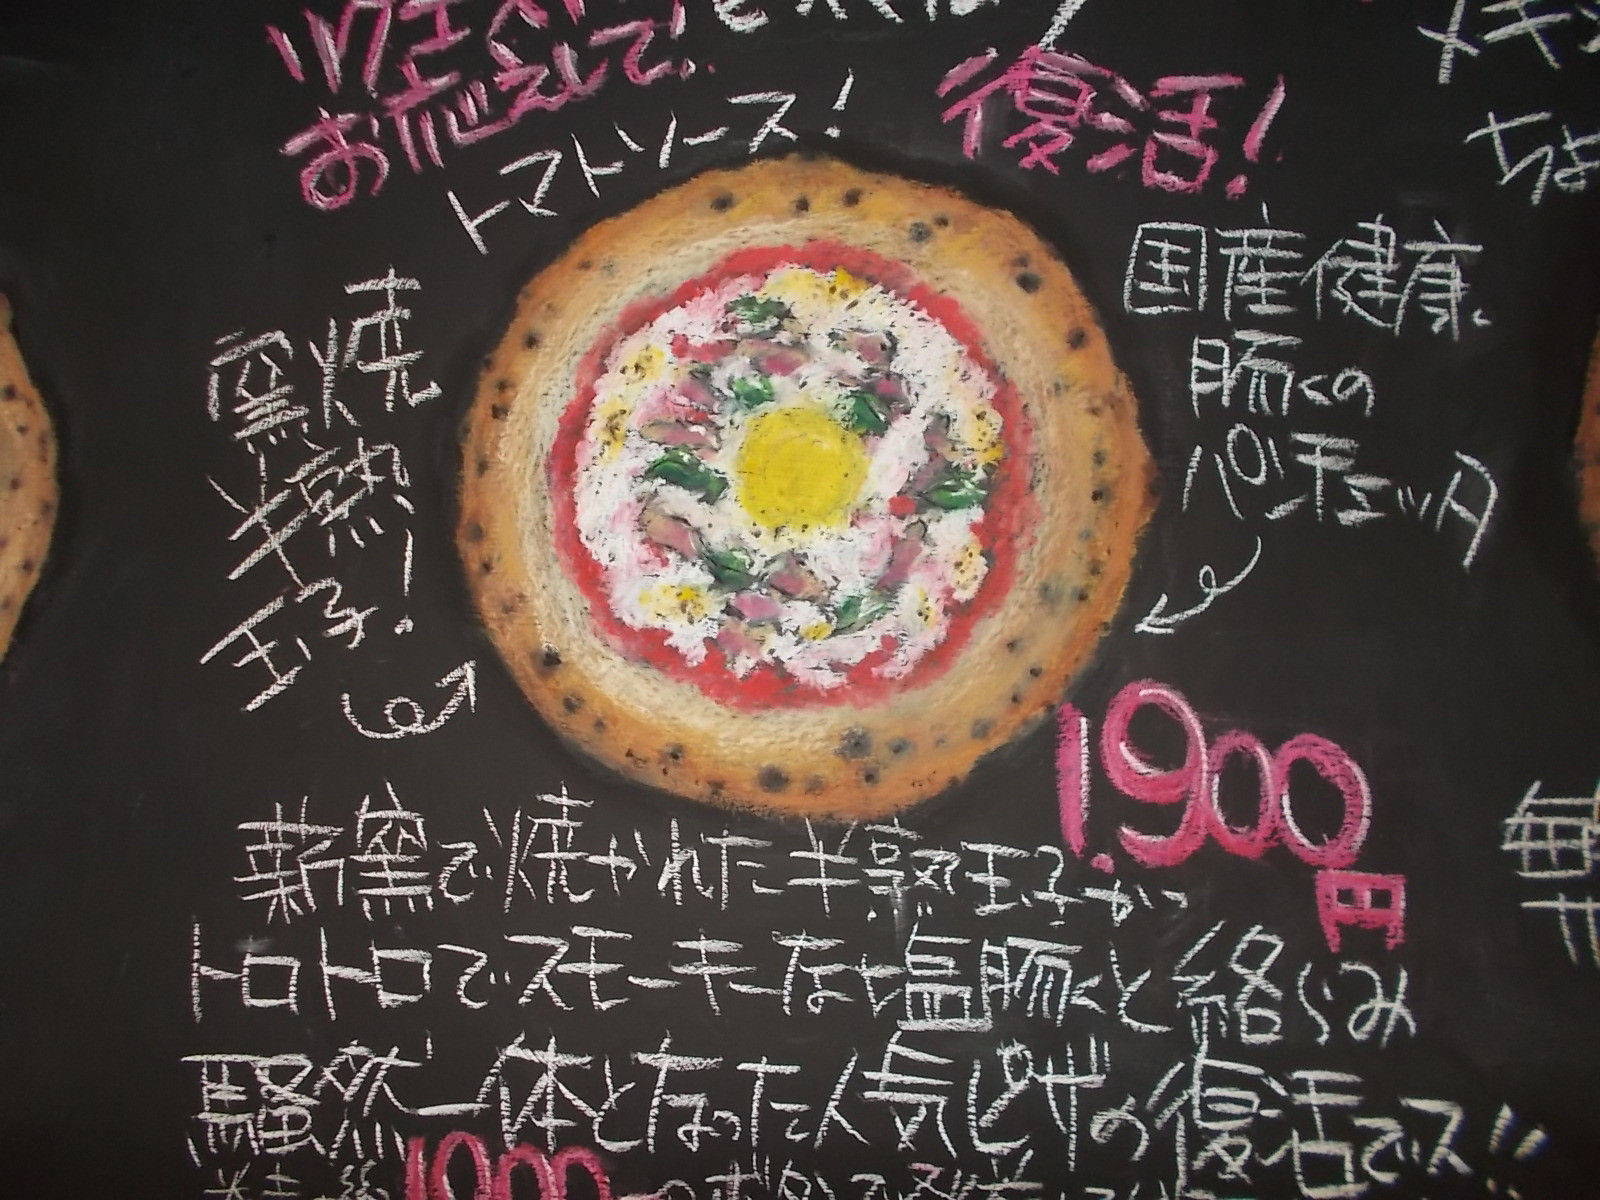 お応えして!
トマトソース!
復活!
国産健康
豚くの
パンチェッタ
窯焼
半熟
玉子!
1,900
円
薪窯で焼かれた半熟玉子が
トロトロでスモーキーな塩豚くと絡らみ
騒然一体となった人気ピザの復活でス!!